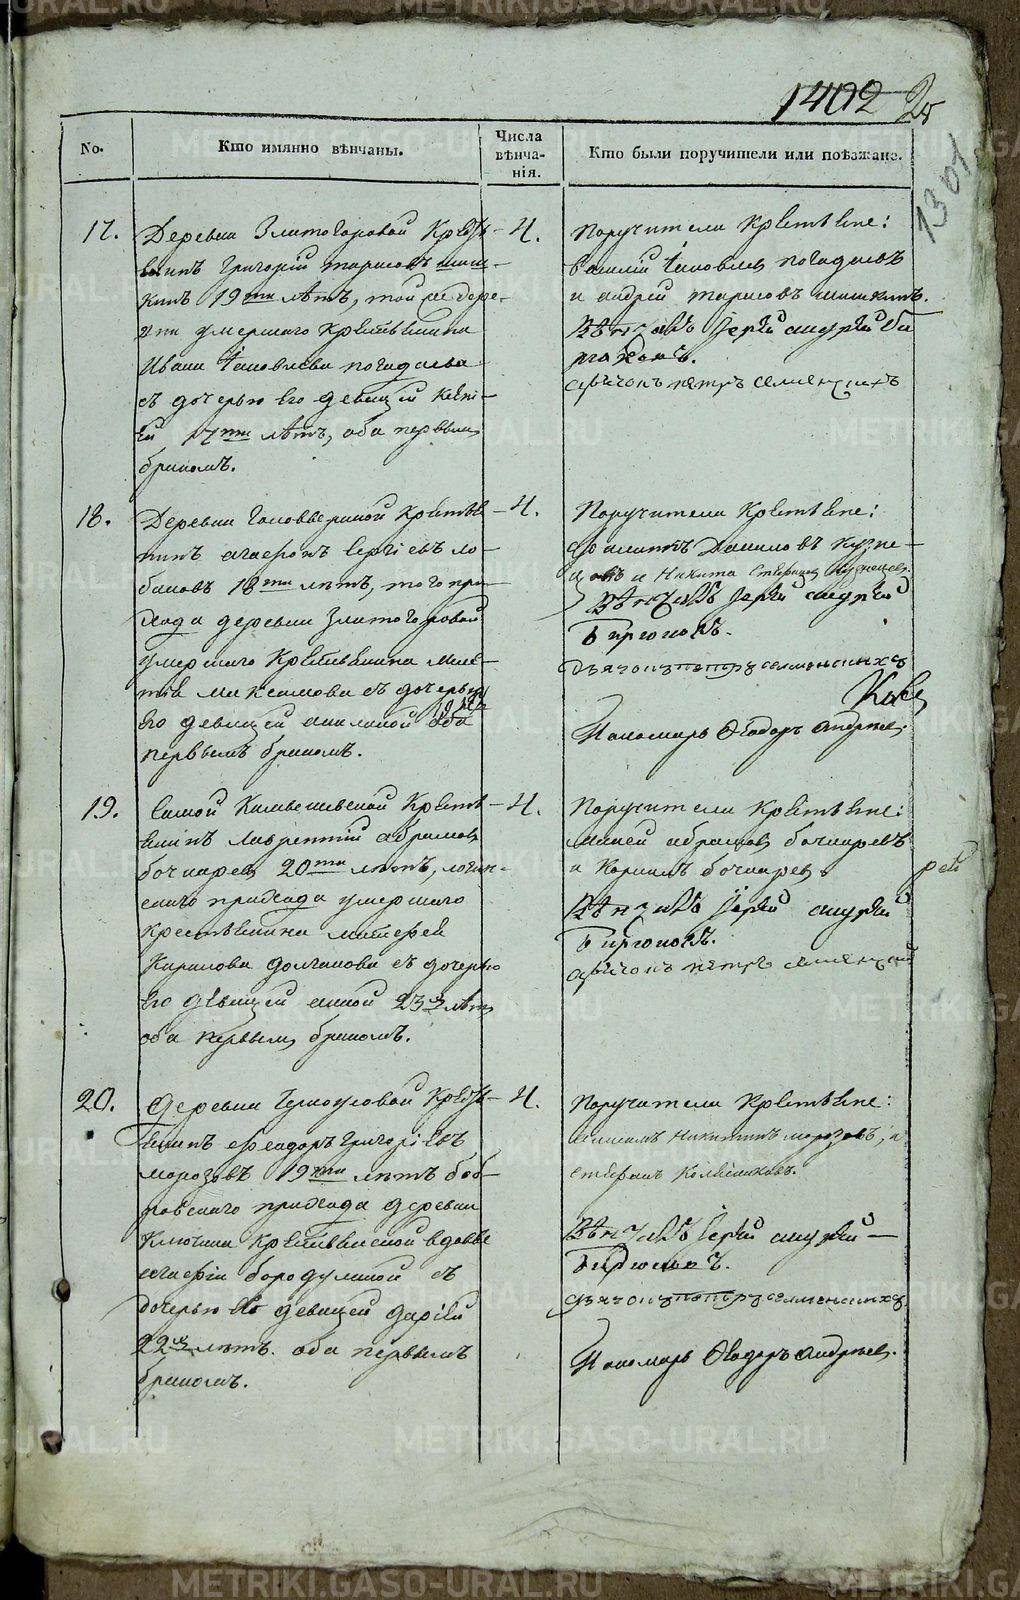 1402
1301
No.
Кто имянно вѣнчаны.
Числа вѣнча-нія.
Кто были поручители или поѣзжане.
17.
Деревни Златогоровой Крестьъ-
янинъ Григорій Тарасовъ Шиш-
кинъ 19ти лѣтъ, той же дере-
вни умершаго Крестьянина
Ивана Яковлева Погадаева
съ дочерью его девицей
17ти лѣтъ, оба первымъ
бракомъ.
4.
Поручители Крестьяне:
Василій Яковлевъ Погадаевъ
и Андрей Тарасовъ Шишкинъ.
Вѣнчалъ Іерей Андрей Би
рюковъ.
Дьячокъ Петръ Селменскихъ
18.
Деревни Крестья
нинъ Агафонъ Сергіевъ Ло-
бановъ 18ти лѣтъ, того при-
хода деревни Златогоровой
умершаго Крестьянина
Максимова съ дочерью
его девицей Акилиной оба
первымъ бракомъ.
4.
Поручители Крестьяне:
Филиппъ Даниловъ Кузне-
цовъ и Никита
Вѣнчалъ Іерей Андрей
Бирюковъ.
Дьячокъ Петръ Селменскихъ
Пономарь Ѳеодоръ Андреев.
19.
Самой Камышевской Крестья
янинъ Лаврентій Абрамовъ
Бочкаревъ 20ти лѣтъ, Логин-
скаго прихода умершаго
Крестьянина
Кирилова Долганова съ дочерью
его девицей Анной 23хъ лѣтъ
оба первымъ бракомъ.
4.
Поручители Крестьяне:
Абрамовъ Бочкаревъ
и Бочкаревъ
Вѣнчалъ Іерей Андрей
Бирюковъ.
Дьячокъ Петръ Селменскій
20.
Деревни Черноусовой Кресть-
янинъ Ѳеодоръ Григорьевъ
Морозовъ 19ти лѣтъ Боб-
ровскаго прихода деревни
Ключика Крестьянской вдовы
Бородулиной съ
дочерью ея девицей Дарьей
22хъ лѣтъ. оба первымъ
бракомъ.
4.
Поручители Крестьяне:
Никитинъ Морозовъ, и
Стефанъ Колесниковъ.
Вѣнчалъ Іерей Андрей
Бирюковъ.
Дьячокъ Петръ Селменскихъ
Пономарь Ѳеодоръ Андреев.
METRIKI.GASO-URAL.RU